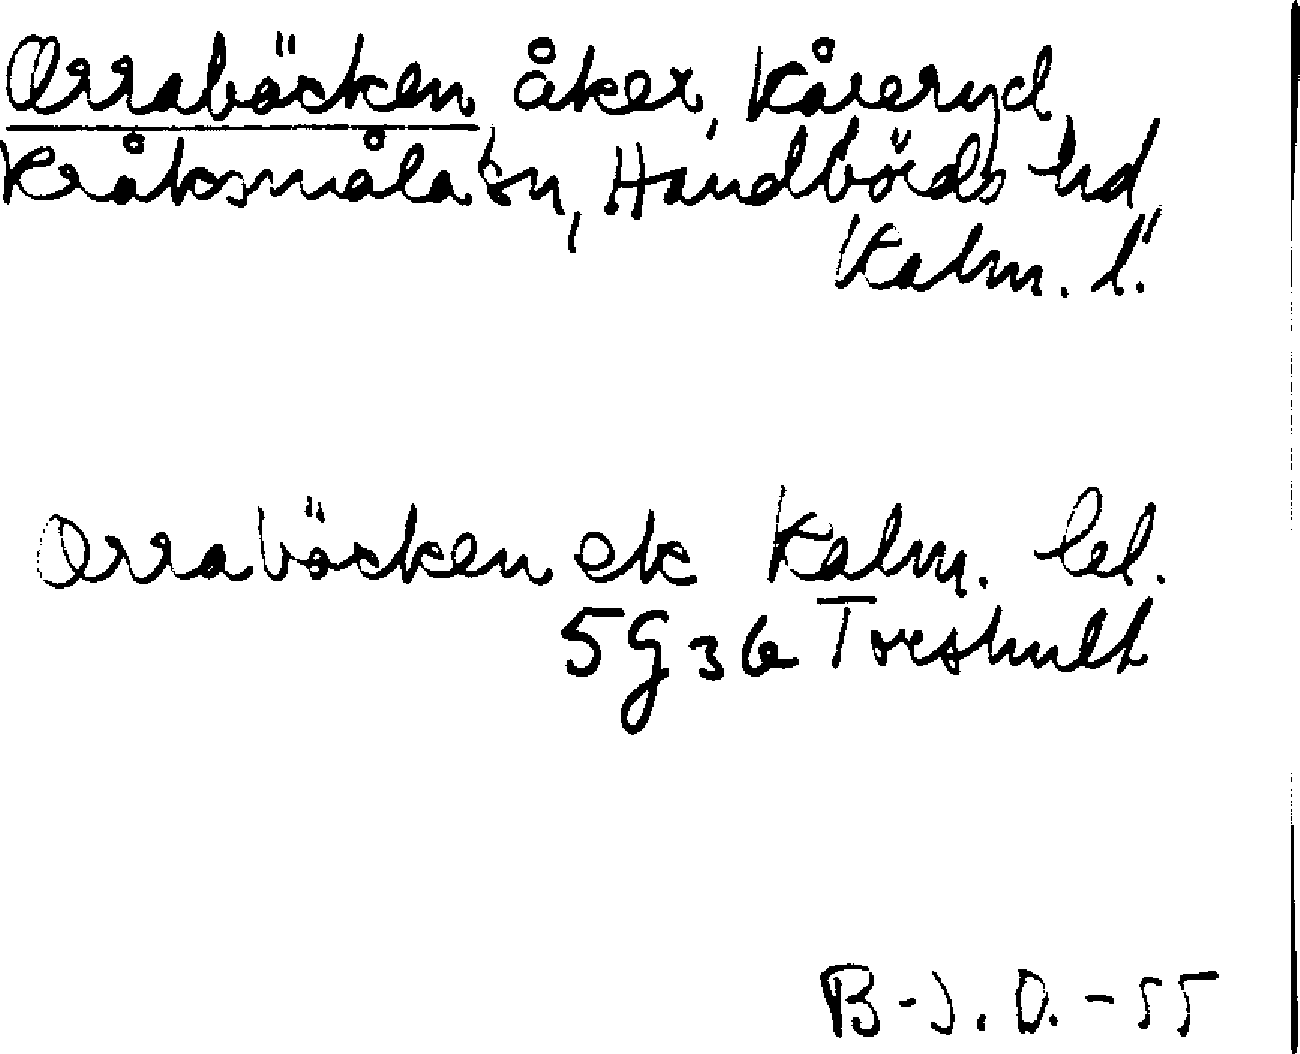 Orraböcken åker, Kåreryd
Kråksmåla sn, Handbörds hd
Kalm. l.
Orraböcken ek Kalm. bl.
5 g 36 Toreshult
B-J. O. - 55